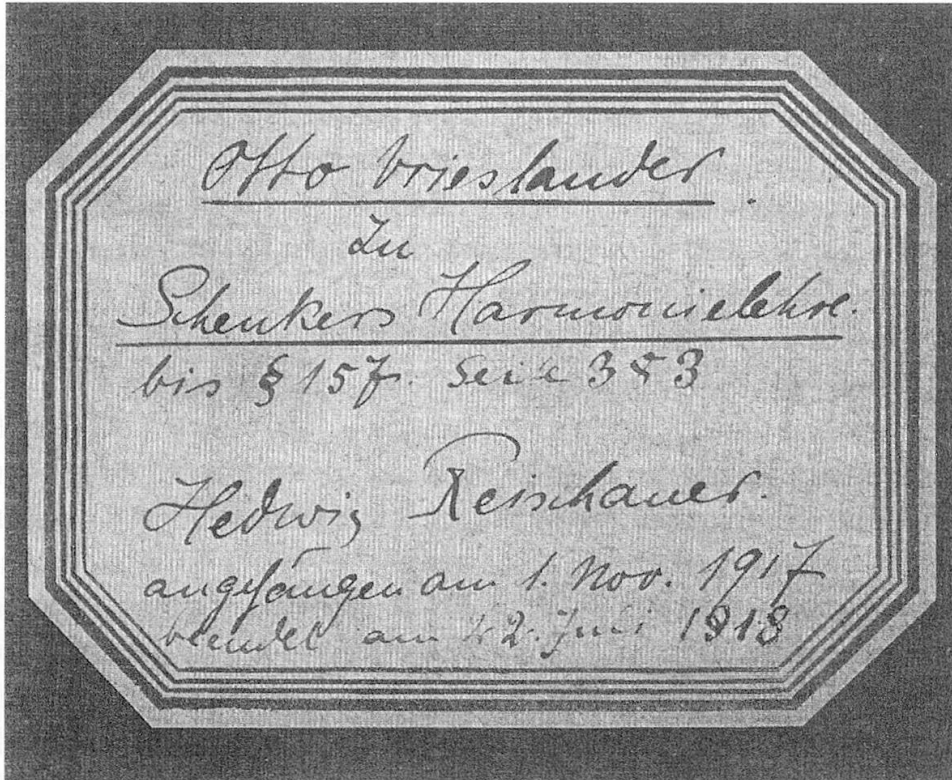 Otto Vrieslander.
Zu
Schenkers Harmonielehre.
bis § 157. Seite 353
Hedwig Reischauer.
angefangen am 1. Nov. 1917
beendet am 2. Juli 1918